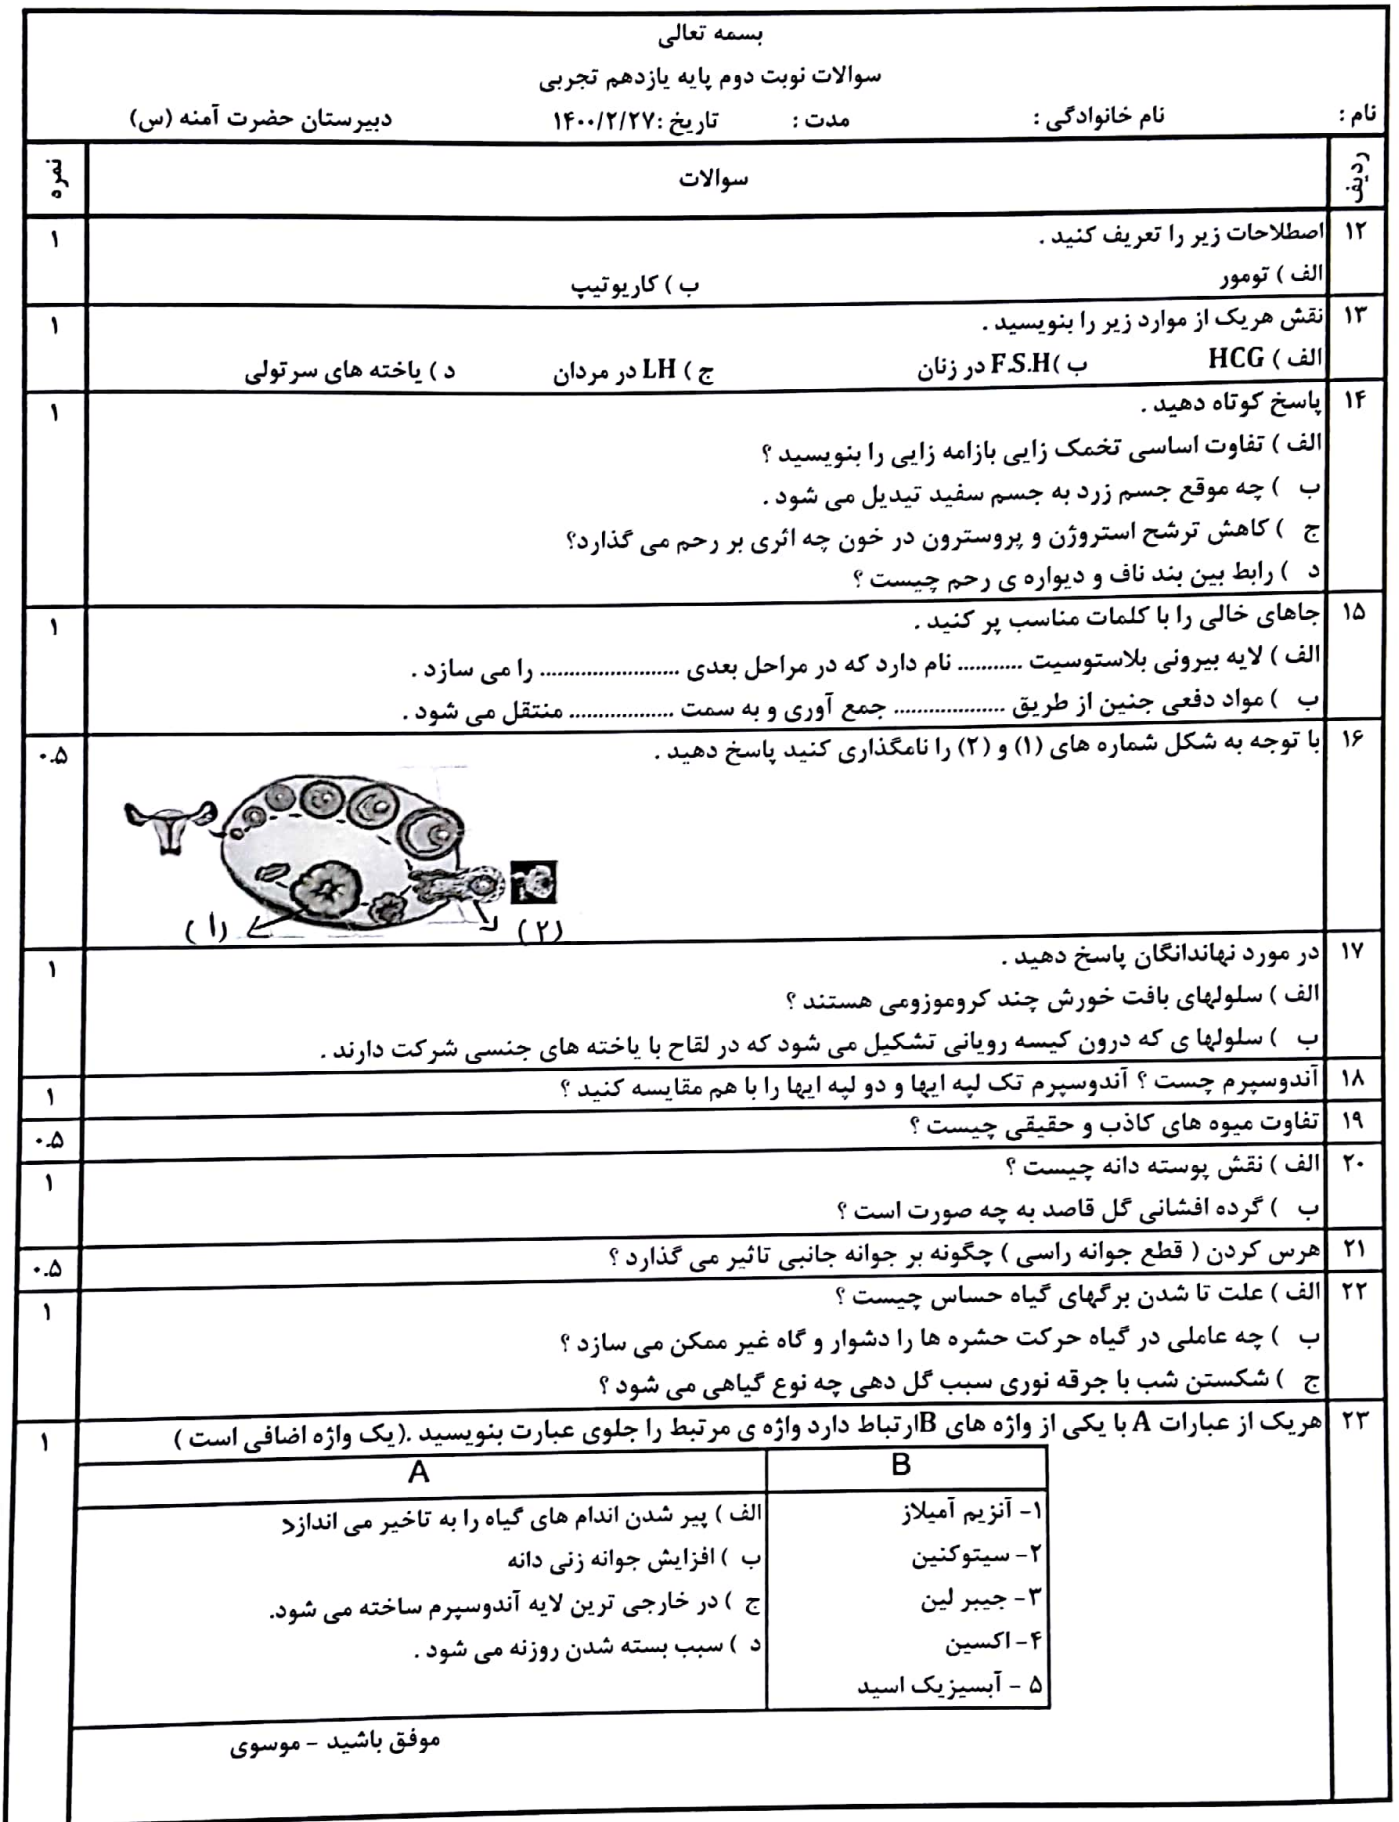 بسمه تعالی
سوالات نوبت دوم پایه یازدهم تجربی
نام : نام خانوادگی : مدت : تاریخ :۱۴۰۰/۲/۲۷ دبیرستان حضرت آمنه (س)
ردیف سوالات نمره
۱۲ اصطلاحات زیر را تعریف کنید . ۱
الف ) تومور ب ) کاریوتیپ
۱۳ نقش هریک از موارد زیر را بنویسید . ۱
الف ) HCG ب )F.S.H در زنان ج ) LH در مردان د ) یاخته های سرتولی
۱۴ پاسخ کوتاه دهید . ۱
الف ) تفاوت اساسی تخمک زایی بازامه زایی را بنویسید ؟
ب ) چه موقع جسم زرد به جسم سفید تیدیل می شود .
ج ) کاهش ترشح استروژن و پروسترون در خون چه اثری بر رحم می گذارد؟
د ) رابط بین بند ناف و دیواره ی رحم چیست ؟
۱۵ جاهای خالی را با کلمات مناسب پر کنید . ۱
الف ) لایه بیرونی بلاستوسیت ........... نام دارد که در مراحل بعدی ........................ را می سازد .
ب ) مواد دفعی جنین از طریق ................... جمع آوری و به سمت .................. منتقل می شود .
۱۶ با توجه به شکل شماره های (۱) و (۲) را نامگذاری کنید پاسخ دهید . ۰.۵
(۱) (۲)
۱۷ در مورد نهاندانگان پاسخ دهید . ۱
الف ) سلولهای بافت خورش چند کروموزومی هستند ؟
ب ) سلولها ی که درون کیسه رویانی تشکیل می شود که در لقاح با یاخته های جنسی شرکت دارند .
۱۸ آندوسپرم چست ؟ آندوسپرم تک لپه ایها و دو لپه ایها را با هم مقایسه کنید ؟ ۱
۱۹ تفاوت میوه های کاذب و حقیقی چیست ؟ ۰.۵
۲۰ الف ) نقش پوسته دانه چیست ؟ ۱
ب ) گرده افشانی گل قاصد به چه صورت است ؟
۲۱ هرس کردن ( قطع جوانه راسی ) چگونه بر جوانه جانبی تاثیر می گذارد ؟ ۰.۵
۲۲ الف ) علت تا شدن برگهای گیاه حساس چیست ؟ ۱
ب ) چه عاملی در گیاه حرکت حشره ها را دشوار و گاه غیر ممکن می سازد ؟
ج ) شکستن شب با جرقه نوری سبب گل دهی چه نوع گیاهی می شود ؟
۲۳ هریک از عبارات A با یکی از واژه های Bارتباط دارد واژه ی مرتبط را جلوی عبارت بنویسید .(یک واژه اضافی است ) ۱
B A
۱- آنزیم آمیلاز الف ) پیر شدن اندام های گیاه را به تاخیر می اندازد
۲- سیتوکنین ب ) افزایش جوانه زنی دانه
۳- جیبر لین ج ) در خارجی ترین لایه آندوسپرم ساخته می شود.
۴- اکسین د ) سبب بسته شدن روزنه می شود .
۵ - آبسیزیک اسید
موفق باشید - موسوی